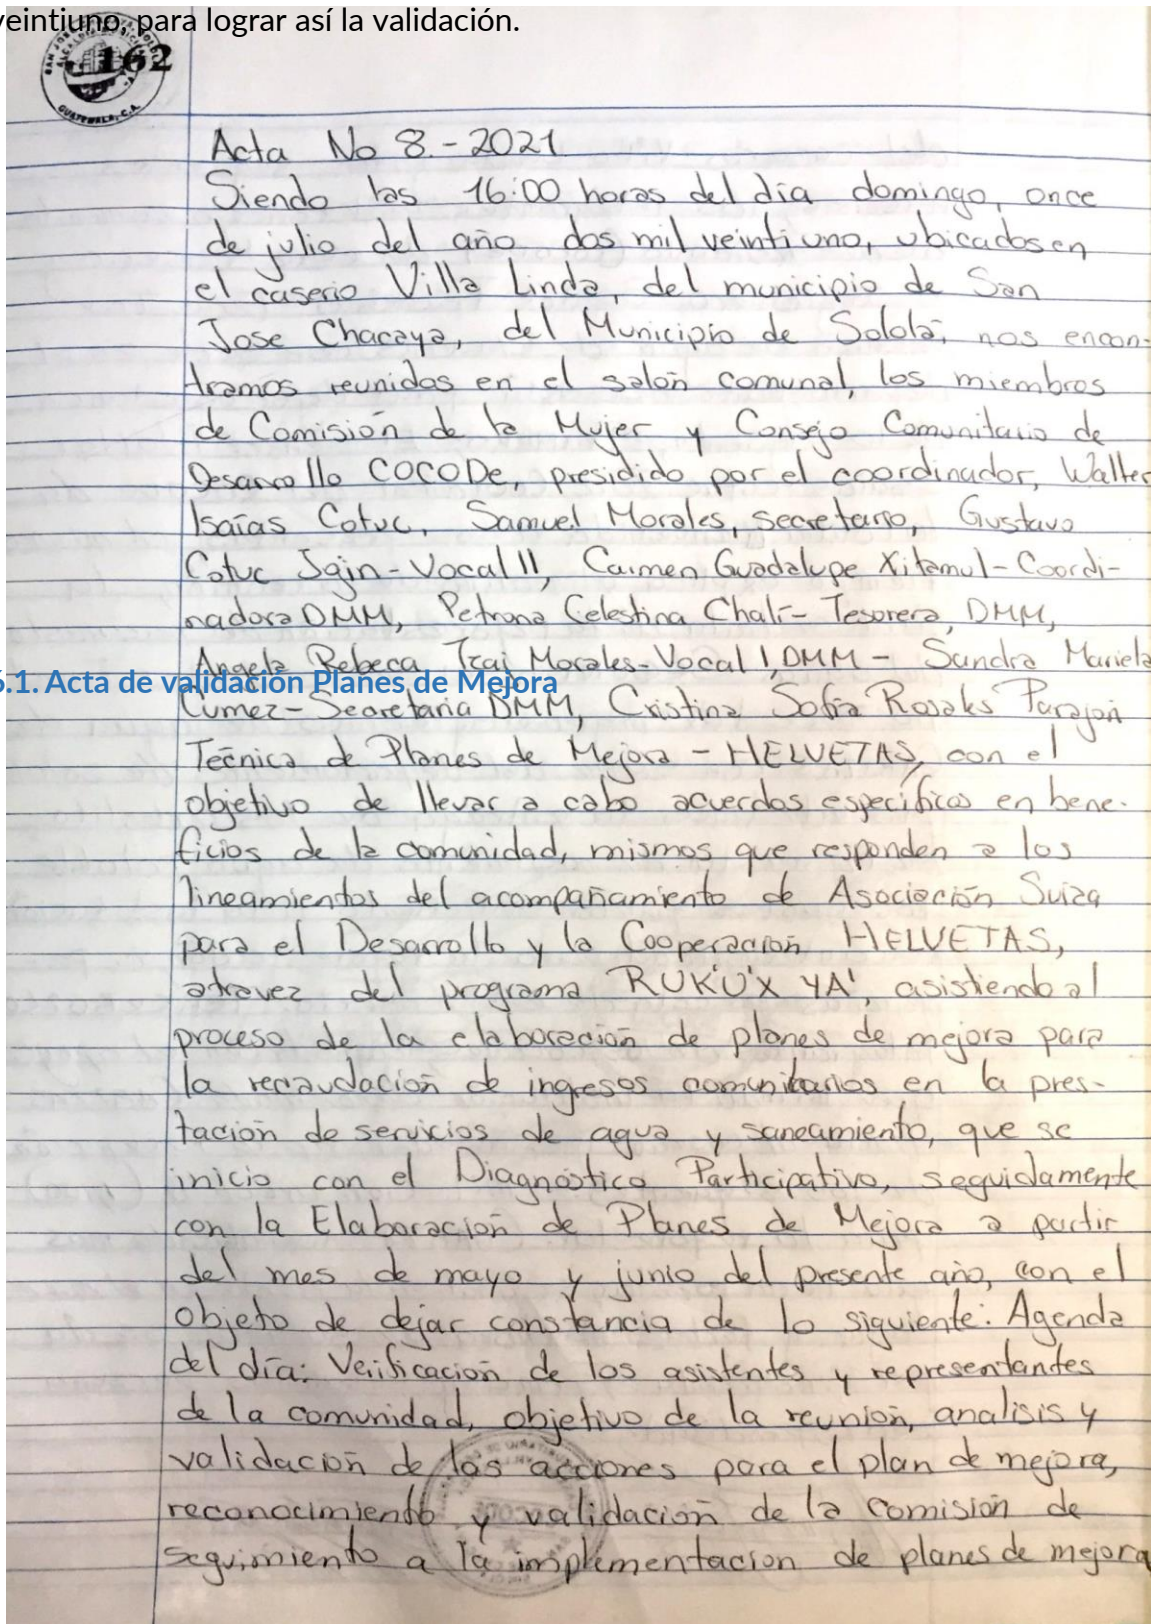 veintiuno, para lograr así la validación.
162
GUATEMALA, C.A.
Acta No 8.-2021
Siendo las 16:00 horas del día domingo, once
de julio del año dos mil veintiuno, ubicados en
el caserio Villa Linda, del municipio de San
Jose Chacaya, del Municipio de Sololá, nos encon-
tramos reunidos en el salón comunal, los miembros
de Comisión de la Mujer y Consejo Comunitario de
Desarrollo COCODe, presidido por el coordinador, Walter
Isaías Cotuc, Samuel Morales, secretario, Gustavo
Cotuc Jgin-Vocal II, Carmen Guadalupe Xitamul-Coordi-
nadora DMM, Petrona Celestina Chalí- Tesorera, DMM,
Angela Rebeca Tzaj Morales-Vocal I, DMM - Sandra Mariela
6.1. Acta de validación Planes de Mejora
Cumez-Secretaria DMM, Cristina Sofía Rosales Parajón
Técnica de Planes de Mejora - HELVETAS, con el
objetivo de llevar a cabo acuerdos específicos en bene-
ficios de la comunidad, mismos que responden a los
lineamientos del acompañamiento de Asociación Suiza
para el Desarrollo y la Cooperación HELVETAS,
atravez del programa RUK'U'X YA', asistiendo al
proceso de la elaboración de planes de mejora para
la recaudación de ingresos comunitarios en la pres-
tación de servicios de agua y saneamiento, que se
inicio con el Diagnóstico Participativo, seguidamente
con la Elaboración de Planes de Mejora a partir
del mes de mayo y junio del presente año, con el
objeto de dejar constancia de lo siguiente: Agenda
del día: Verificación de los asistentes y representantes
de la comunidad, objetivo de la reunión, analisis y
validación de las acciones para el plan de mejora,
reconocimiento y validación de la comisión de
seguimiento a la implementación de planes de mejora